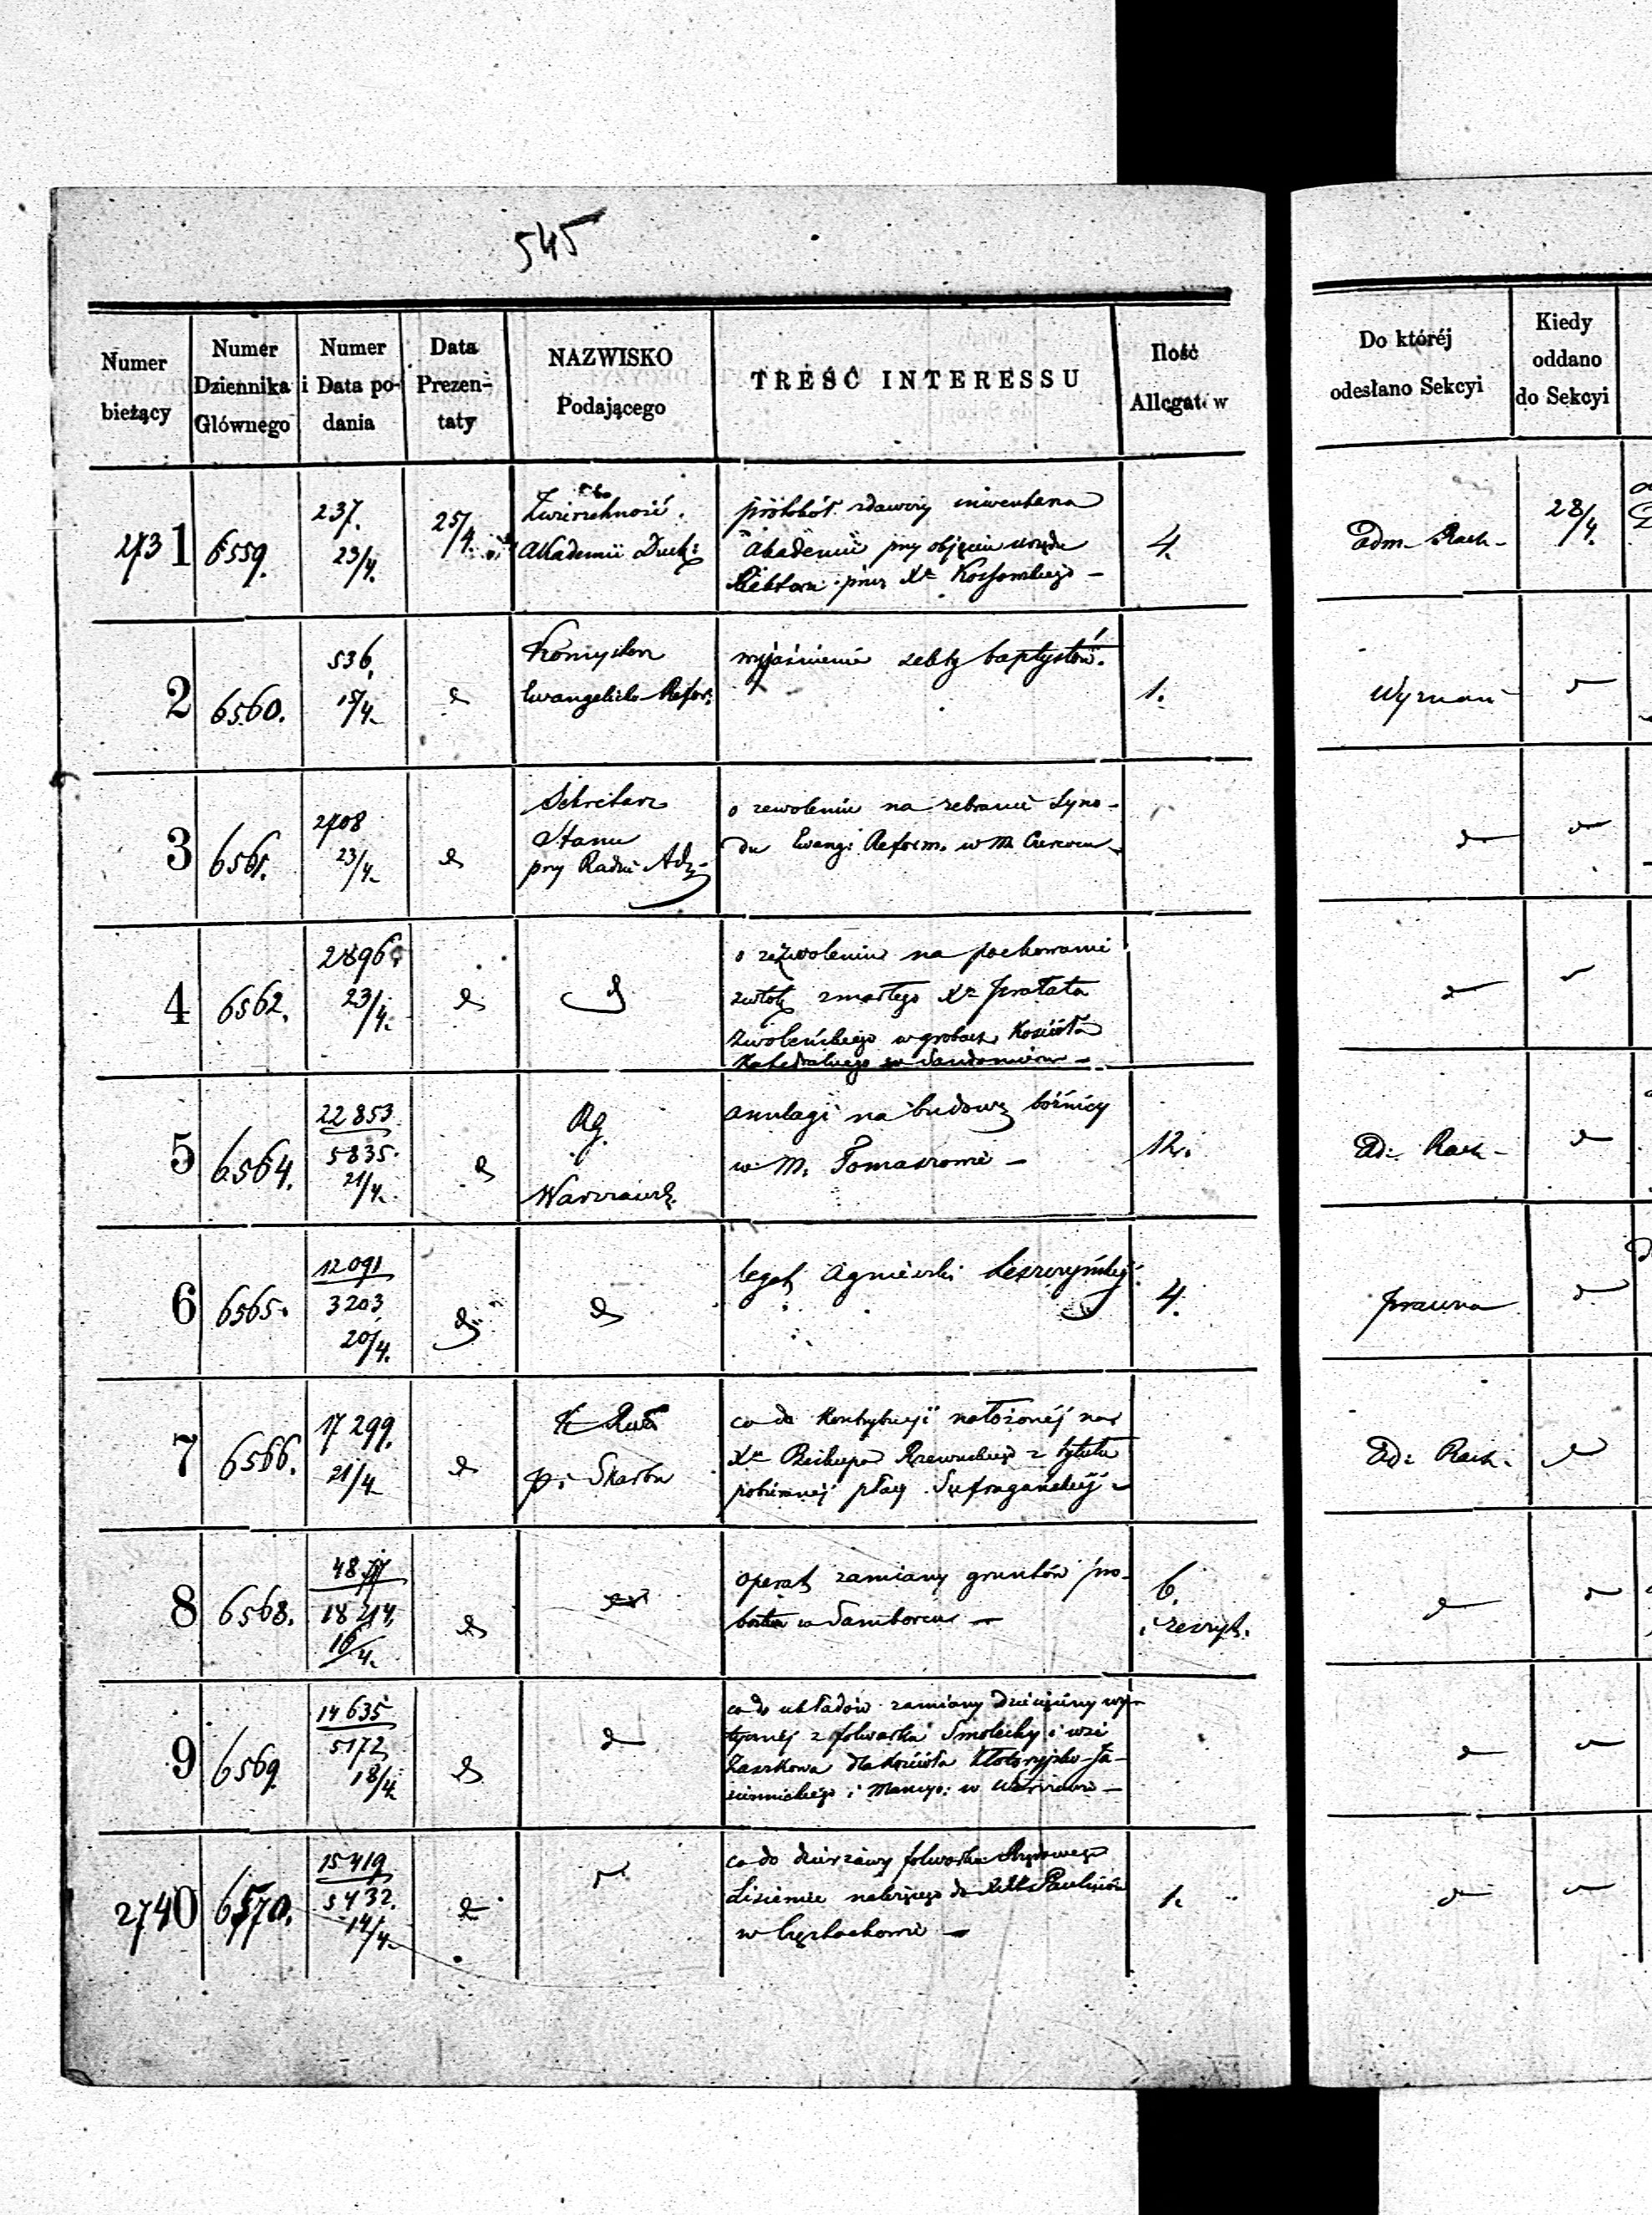 545
Numer bieżący
Numer Dziennika Głównego
Numer i Data podania
Data Prezentaty
NAZWISKO Podającego
TREŚĆ INTERESSU
Ilość Allegatów
Do któréj odesłano Sekcyi
Kiedy oddano do Sekcyi
2731 6559. 237. 23/4. 25/4.
Zwierzchność
Akademii Duch:
protokół zdawczy inwentarza
Akademii przy objęciu urzędu
Rektora przez Xa Kossowskiego —
4.
Adm. Rach. 28/4.
2 6560. 536. 15/4. d
Konsystorz
Ewangelicko Refor:
wyjaśnienie sekty baptystów.
1.
Wyznań
3 6561. 2708 23/4. d
Sekretarz
Stanu
przy Radzie Adz.
o zezwoleniu na zebranie Syno-
du Ewang: Reform. w M.
4 6562. 2896. 23/4. d d
o zezwoleniu na pochowanie
zwłok zmarłego Xa Prałata
Zwoleńskiego w grobach Kościoła
Katedralnego w Sandomierzu —
5 6564. 22853 5835. 21/4. d
Rg.
Warszawsk.
anszlagi na budowę bóżnicy
w M. Tomaszowie —
12.
Ad: Rach.
6 6565. 12091 3203 20/4. d d
legat Agnieszki Leszczyńskiej
4.
Prawna
7 6566. 17299. 21/4. d
P. i Skarbu
co do kontrybucyi nałożonéj na
Xa Biskupa Rzewuskiego z tytułu
pobieranéj płacy Sufragańskiéj —
Ad: Rach.
8 6568. 18214. 16/4. d
operat zamiany gruntów pro-
bostwa w Samborcu —
6.
i zeszyt.
9 6569. 14635 5172 18/4. d d
co do układów zamiany dziesięciny wy-
tycznéj z folwarku Smolechy i wsi
Zaszkowa dla kościoła
i Mansyo: w Warszawie —
2740 6570. 15419 5432. 14/4. d
co do dzierżawy folwarku Rządowego
Lisiniec należącego do XX Paulinów
w Częstochowie —
1.